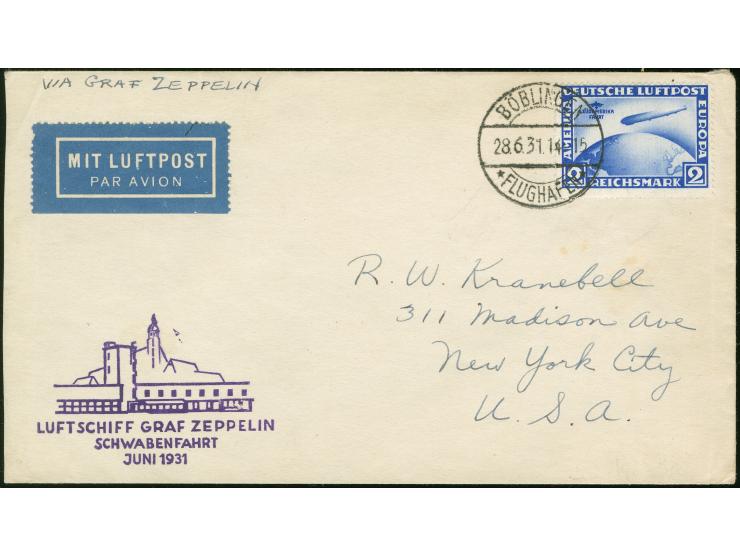 VIA GRAF ZEPPELIN
MIT LUFTPOST
PAR AVION
BÖBLINGEN
28.6.31.14-15
*FLUGHAFEN*
DEUTSCHE LUFTPOST
SÜDAMERIKA
FAHRT
EUROPA
2 REICHSMARK 2
R. W. Kranebell
311 Madison Ave
New York City
U. S. A.
LUFTSCHIFF GRAF ZEPPELIN
SCHWABENFAHRT
JUNI 1931